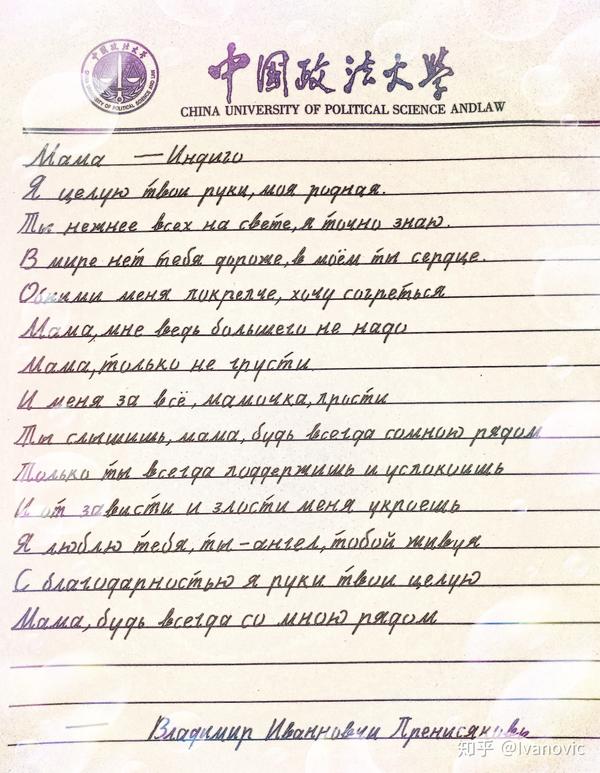 中国政法大学
CHINA UNIVERSITY OF POLITICAL SCIENCE AND LAW
中国政法大学
CHINA UNIVERSITY OF POLITICAL SCIENCE ANDLAW
Мама — Индиго
Я целую твои руки, моя родная.
Ты нежнее всех на свете, я точно знаю.
В мире нет тебя дороже, в моём ты сердце.
Обними меня покрепче, хочу согреться
Мама, мне ведь большего не надо
Мама, только не грусти
И меня за всё, мамочка, прости
Ты слышишь, мама, будь всегда сомною рядом
Только ты всегда поддержишь и успокоишь
И от зависти и злости меня укроешь
Я люблю тебя, ты-ангел, тобой живуя
С благодарностью я руки твои целую
Мама, будь всегда со мною рядом
— Владимир
知乎 @Ivanovic